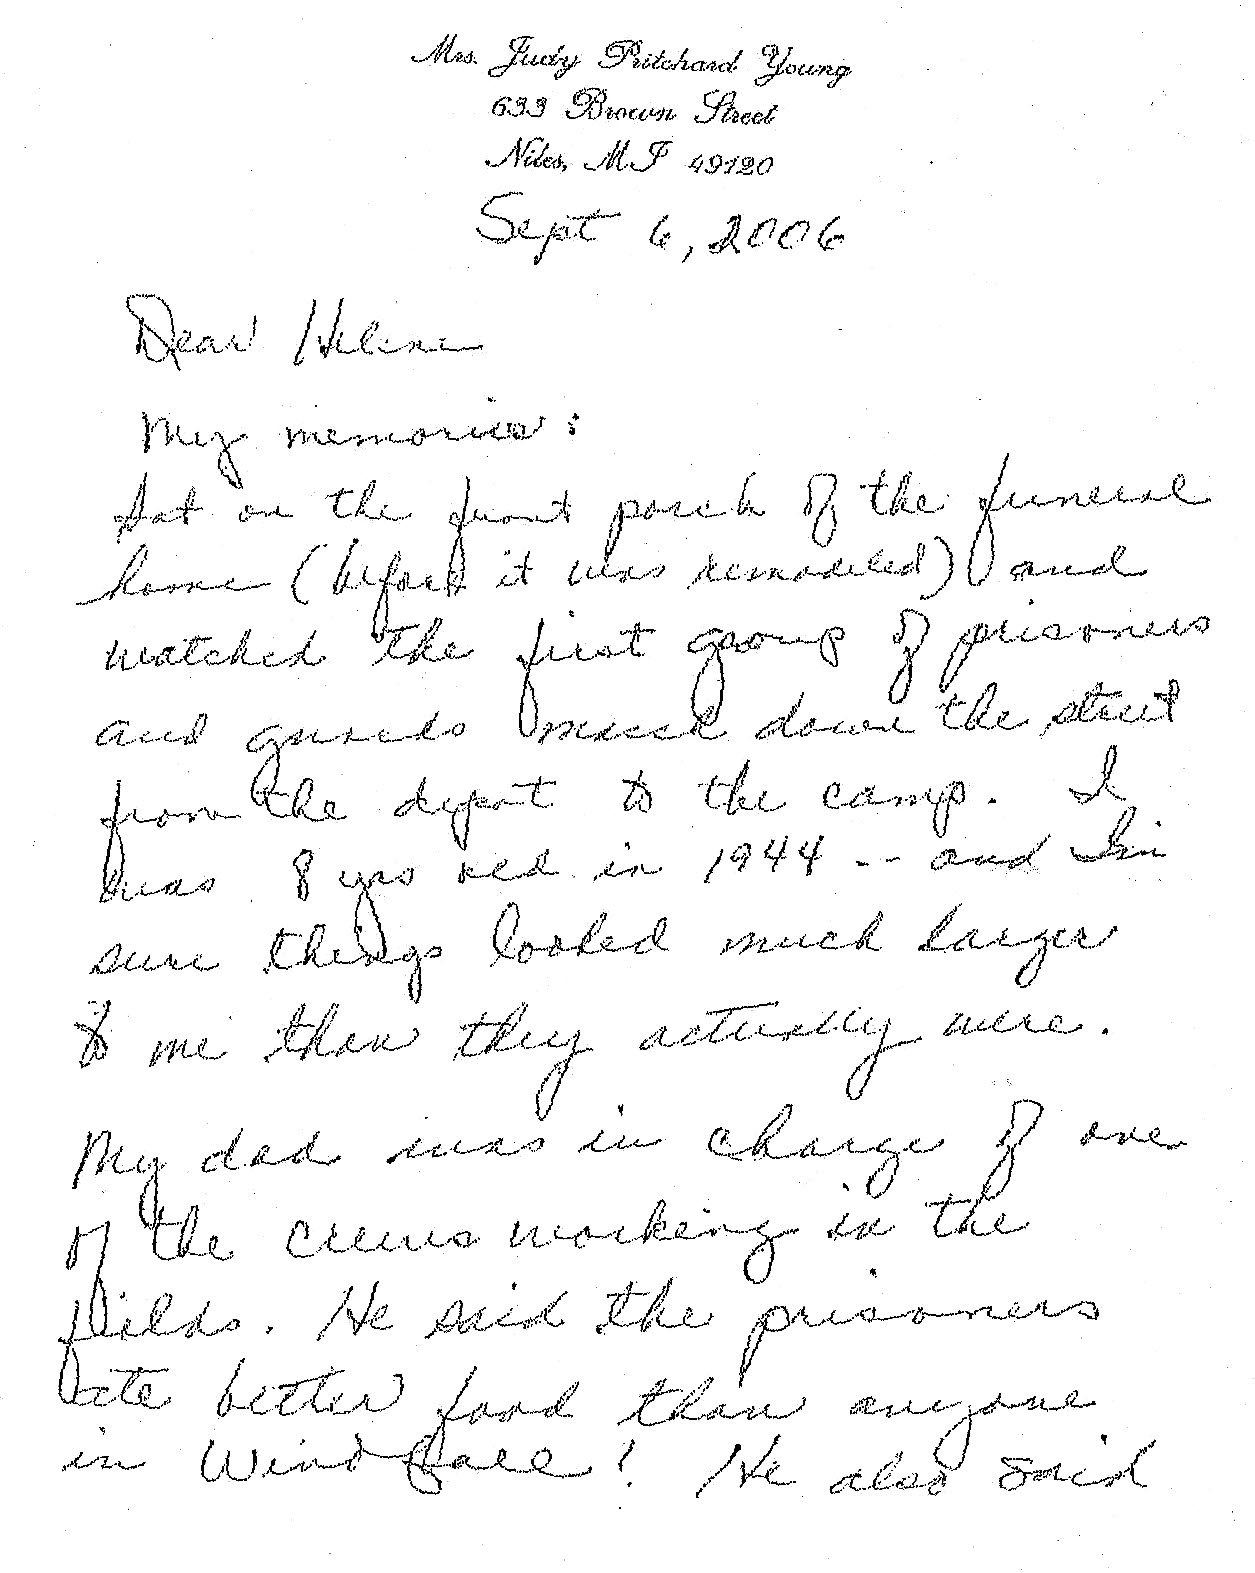 Mrs. Judy Pritchard Young
633 Brown Street
Niles, MI 49120
Sept 6, 2006
Dear Helene
My memories:
Sat on the front porch of the funeral
home (before it was remodeled) and
watched the first group of prisoners
and guards march down the street
from the depot to the camp. I
was 8 yrs old in 1944 -- and I'm
sure things looked much larger
to me than they actually were.
My dad was in charge of one
of the crews working in the
fields. He said the prisoners
ate better food than anyone
in Windfall! He also said